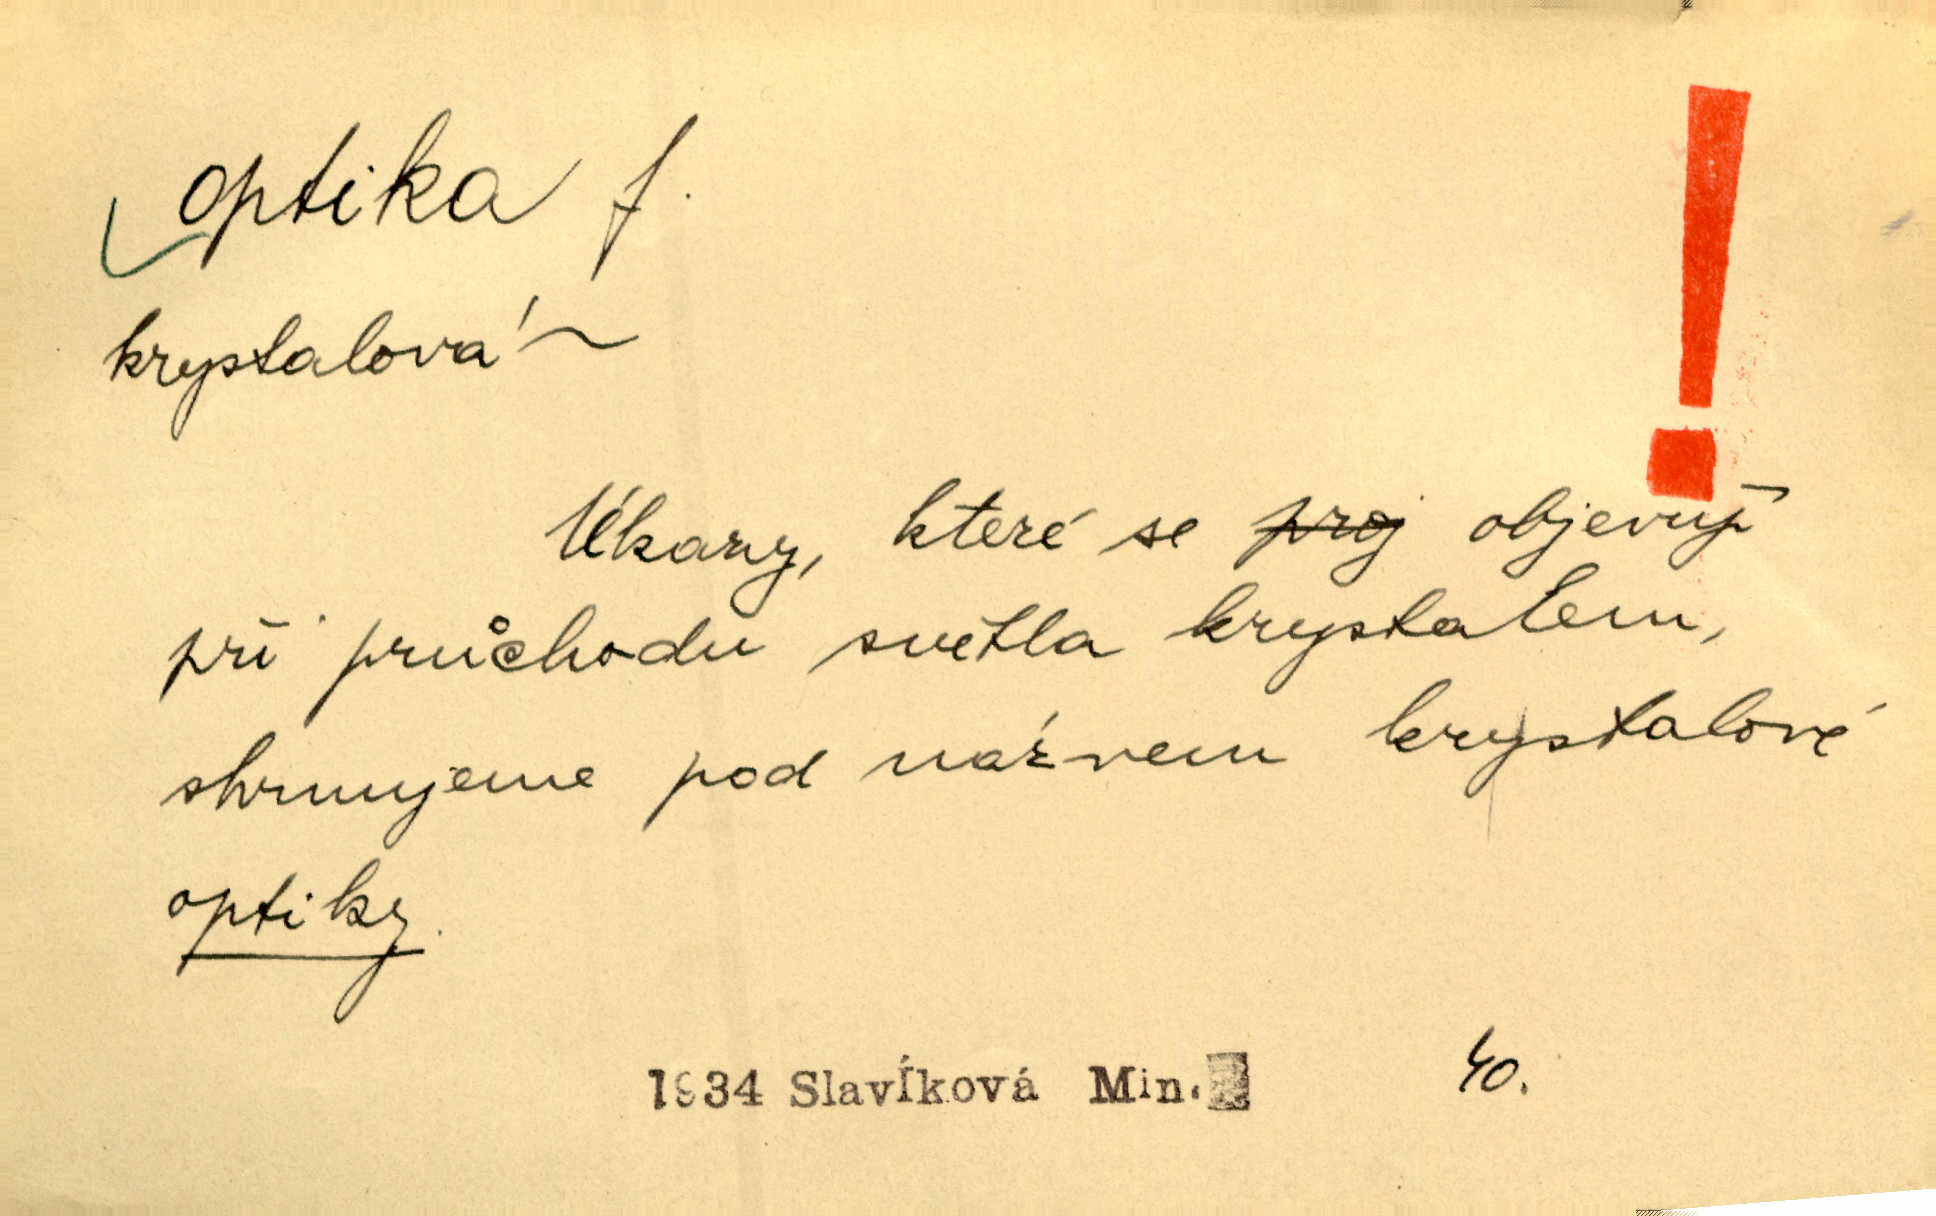 optika f.
krystalová ~
!
Úkazy, které se proj objevují
při průchodu světla krystalem,
shrnujeme pod názvem krystalové
optiky.
1934 Slavíková Min. 40.